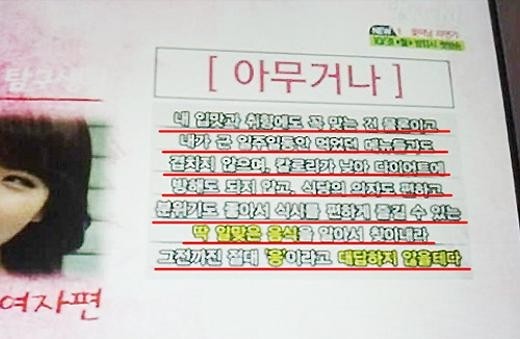 NEW
[ 아무거나 ]
내 입맛과 취향에도 꼭 맞는 건 물론이고
내가 근 일주일동안 먹었던 메뉴들과도
겹치지 않으며, 칼로리가 낮아 다이어트에
방해도 되지 않고, 식당의 의자도 편하고
분위기도 좋아서 식사를 편하게 즐길 수 있는
딱 알맞은 음식을 알아서 찾아내라
그전까진 절대 '응'이라고 대답하지 않을테다
여자편